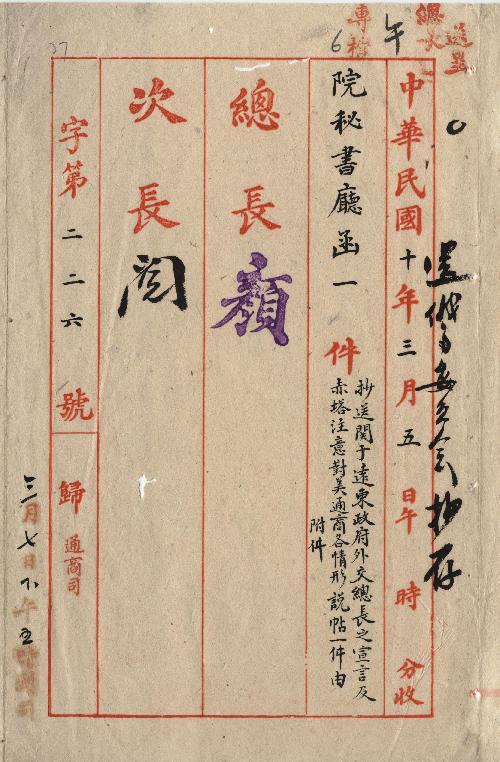 專檔
午
6
37
中華民國十年三月五日午 時 分收
院秘書廳函一件
抄送関于遠東政府外交總長之宣言及
赤塔注意對美通商各情形說帖一件由
附件
總長
次長
閱
字第二二六號
歸通商司
三月七日下午五時